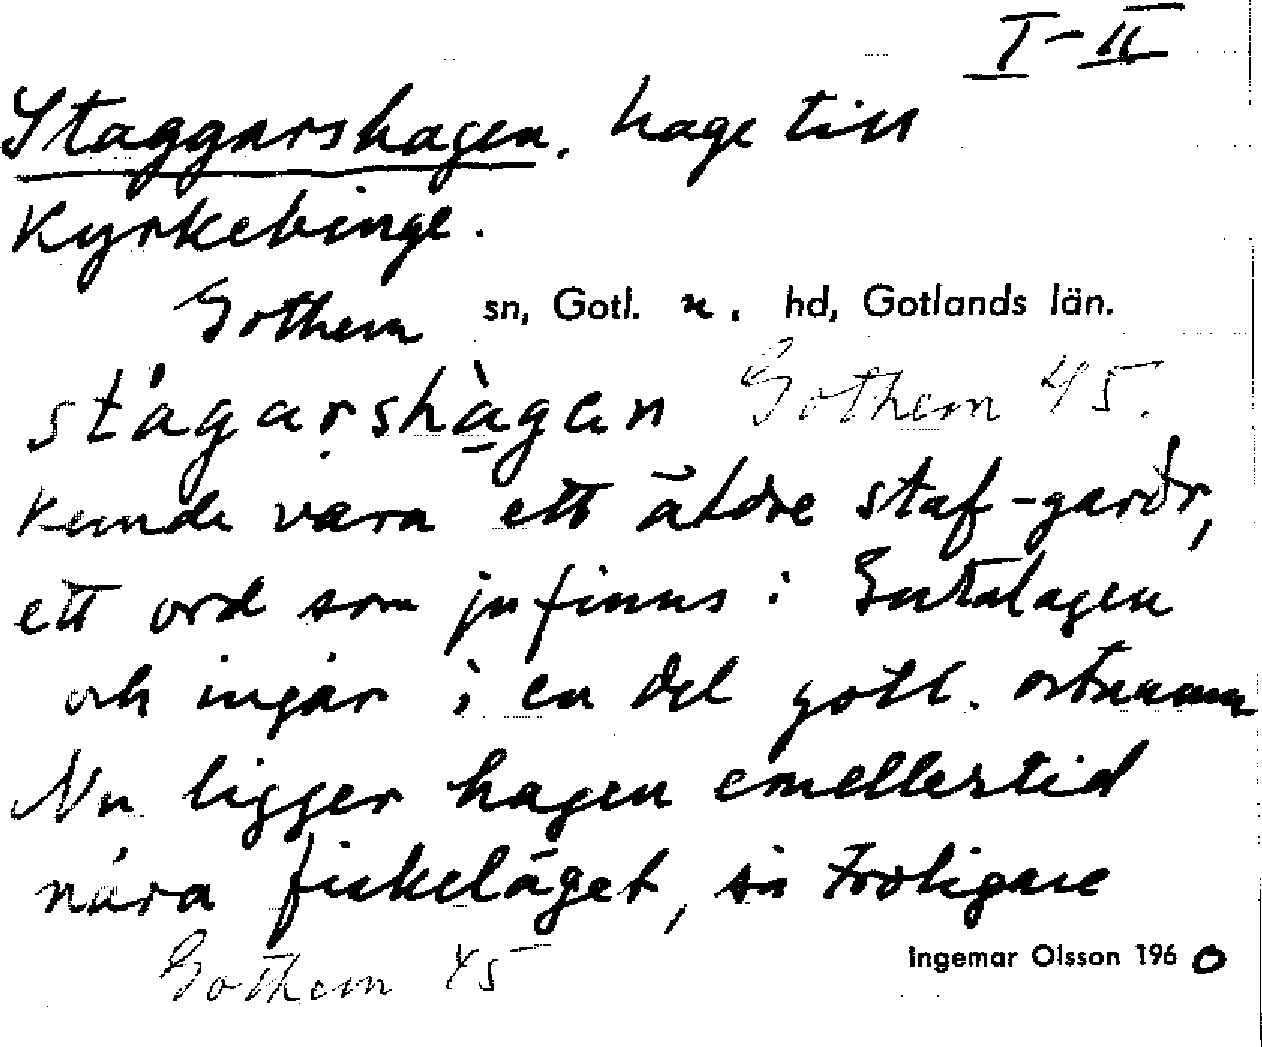 I-II
Staggarshagen. hage till
Kyrkebinge.
Gothem sn, Gotl. n. hd, Gotlands län.
stågarshàgen Gothem 45.
Kunde vara ett äldre staf-garðr,
ett ord som ju finns i Gutalagen
och ingår i en del gotl. ortnamn
Nu ligger hagen emellertid
nära fiskeläget, så troligare
Gothem 45
Ingemar Olsson 1960